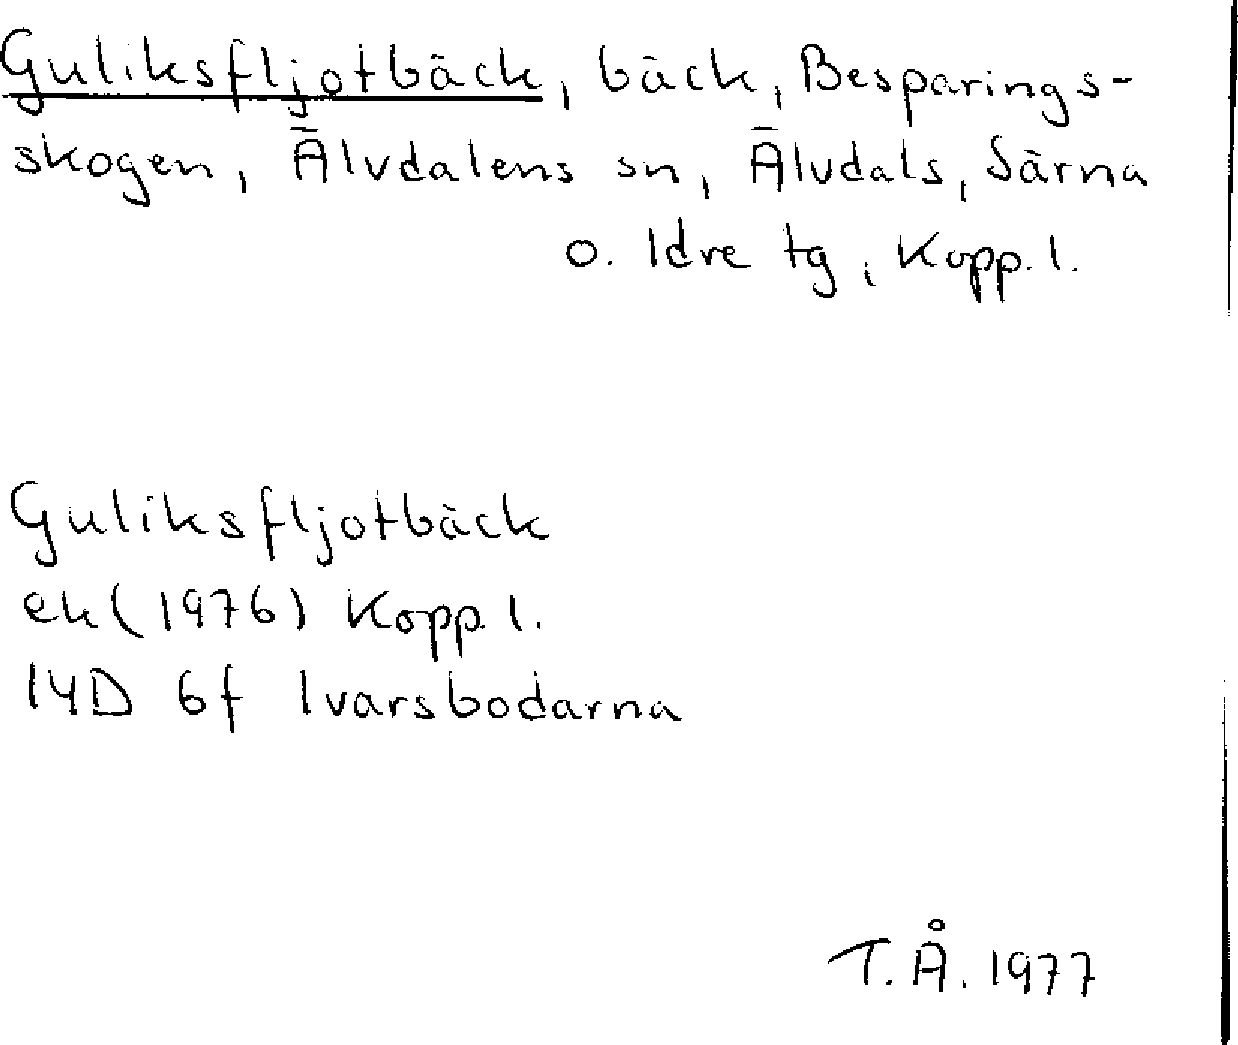 Guliksfljotbäck, bäck, Besparings-
skogen, Älvdalens sn, Älvdals, Särna
o. Idre tg, Kopp. l.
Guliksfljotbäck
ek (1976) Kopp. l.
14D 6f Ivarsbodarna
T. Å. 1977